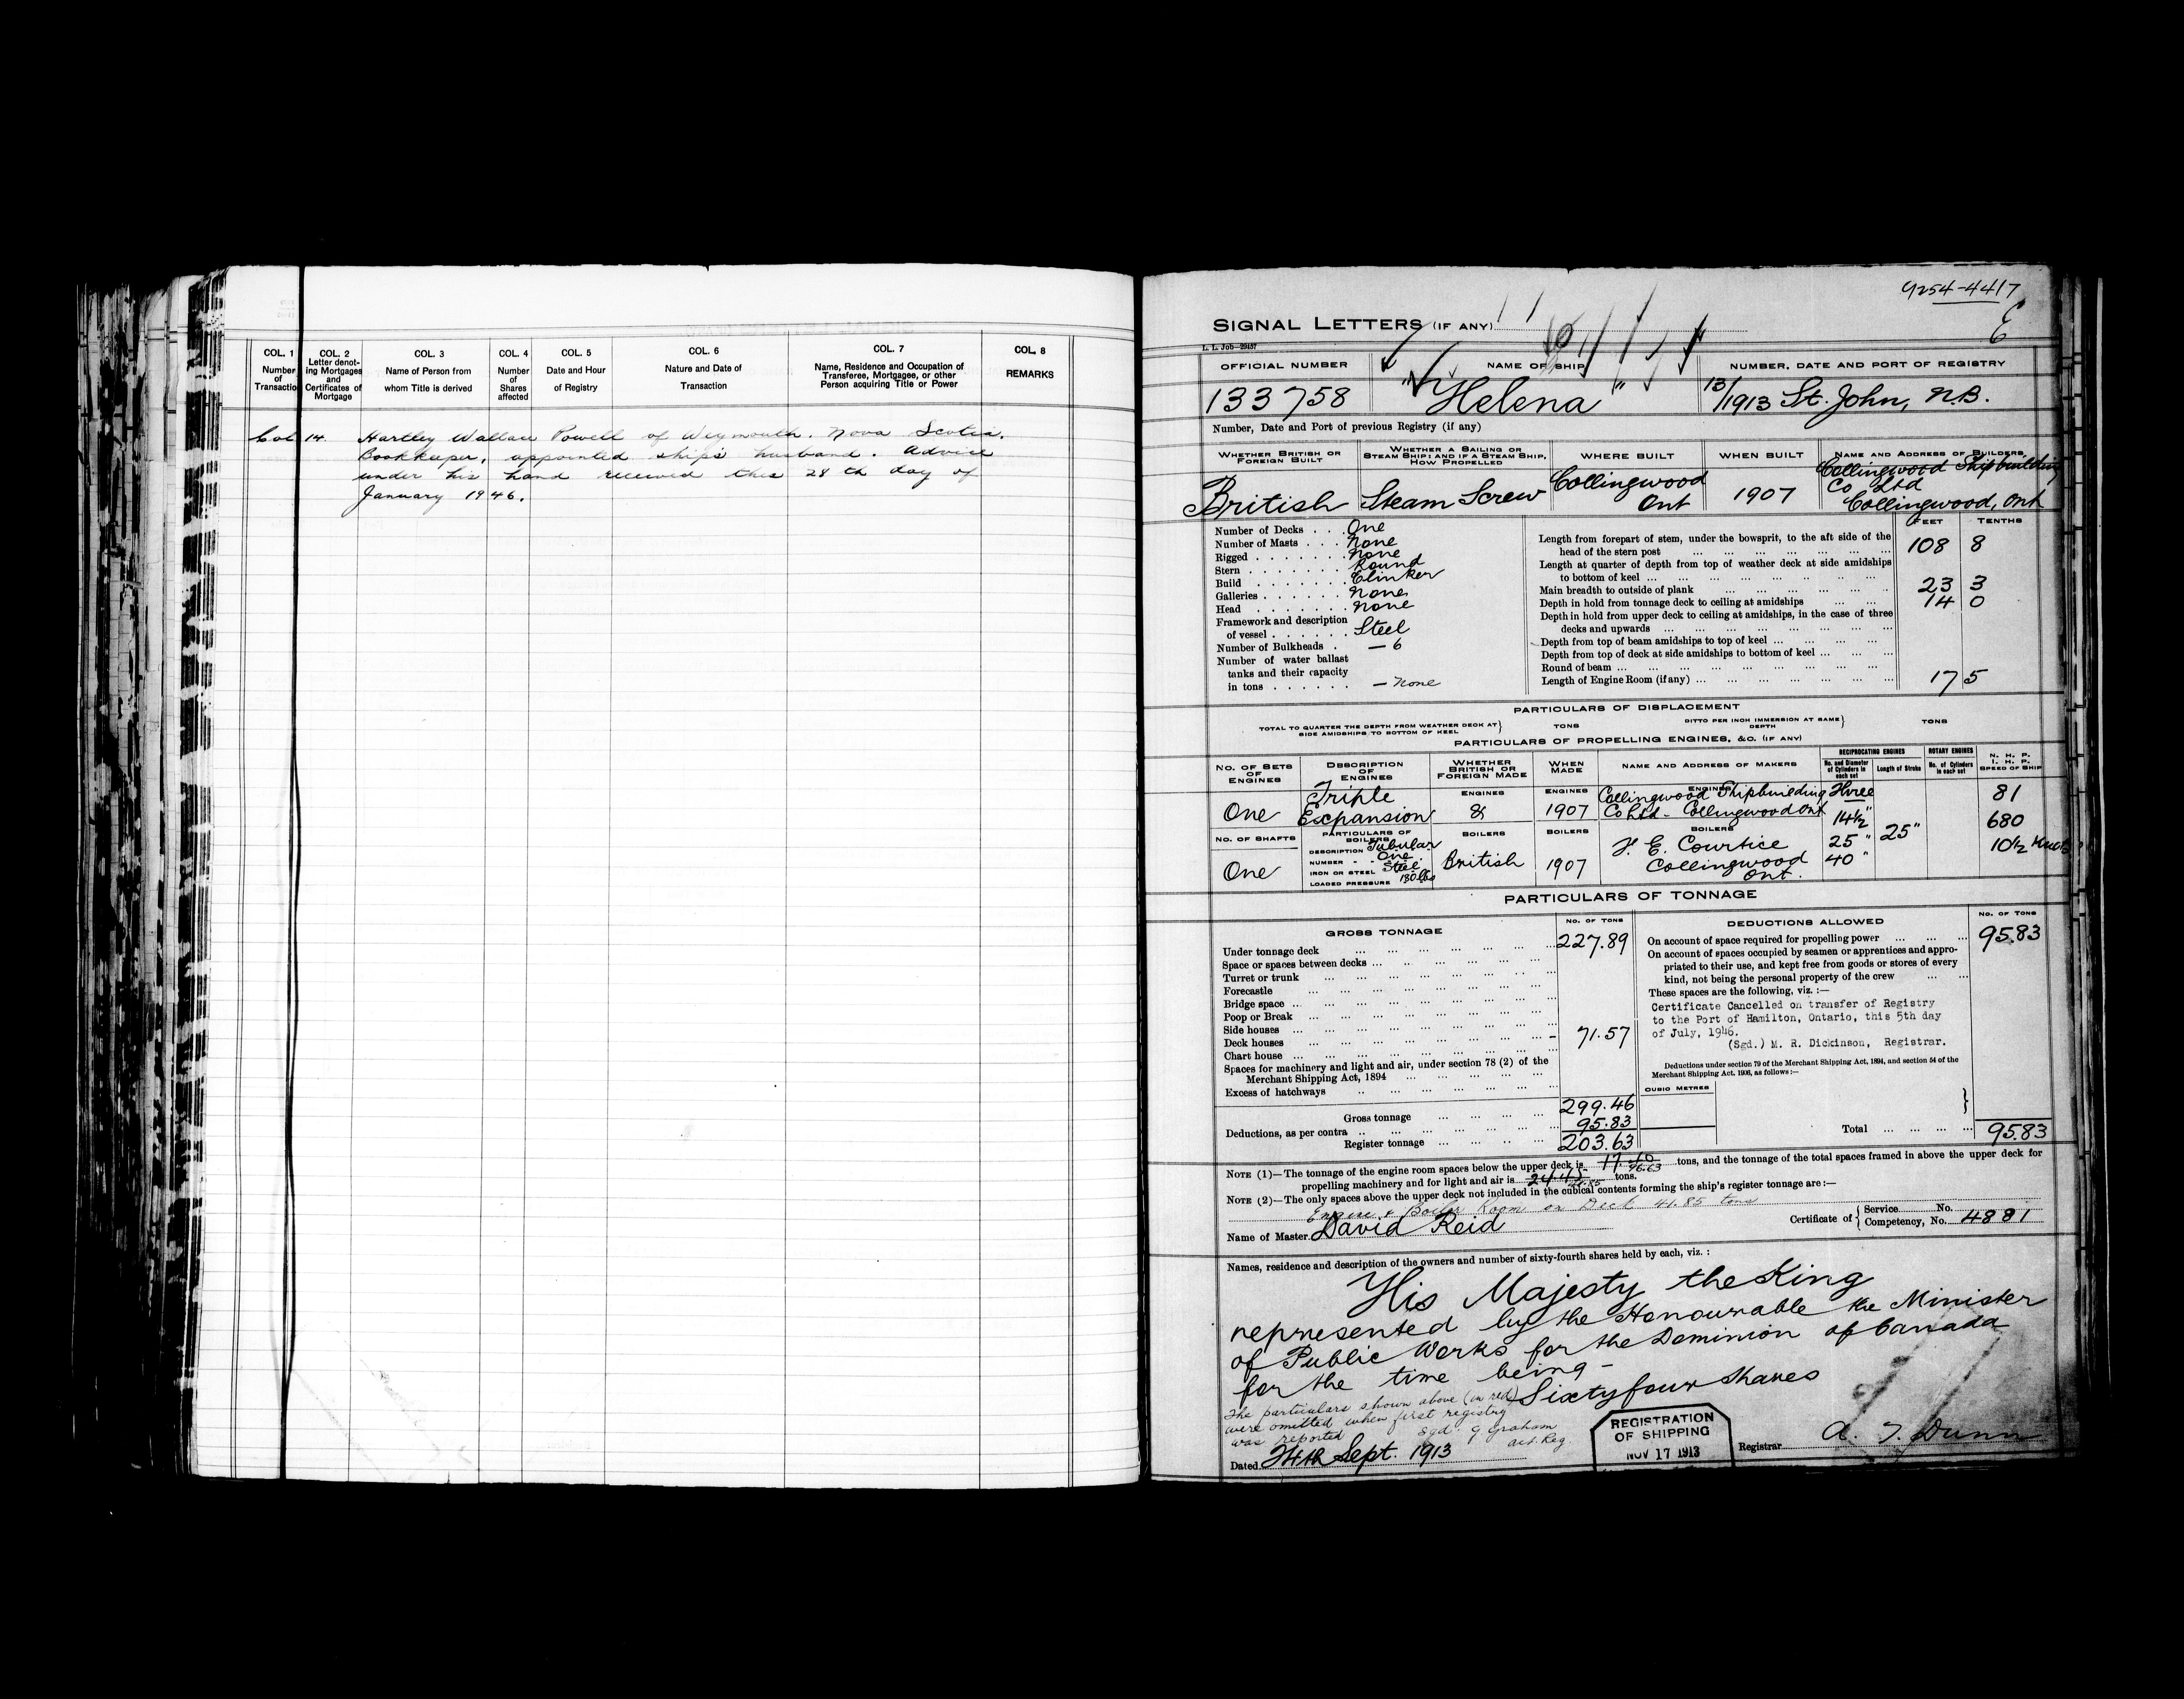 COL. 1 Number of Transaction
COL. 2 Letter denoting Mortgages and Certificates of Mortgage
COL. 3 Name of Person from whom Title is derived
COL. 4 Number of Shares affected
COL. 5 Date and Hour of Registry
COL. 6 Nature and Date of Transaction
COL. 7 Name, Residence and Occupation of Transferee, Mortgagee, or other Person acquiring Title or Power
COL. 8 REMARKS
Col 14. Hartley Wallace Powell of Weymouth. Nova Scotia.
Bookkeeper, appointed ship's husband. Advice
under his hand received this 28th day of
January 1946.
9254-4417
E
SIGNAL LETTERS (IF ANY)
L. L. Job—29457
OFFICIAL NUMBER
NAME OF SHIP
NUMBER, DATE AND PORT OF REGISTRY
133758
"Helena"
13/1913 St. John, N.B.
Number, Date and Port of previous Registry (if any)
WHETHER BRITISH OR FOREIGN BUILT
WHETHER A SAILING OR STEAM SHIP; AND IF A STEAM SHIP, HOW PROPELLED
WHERE BUILT
WHEN BUILT
NAME AND ADDRESS OF BUILDERS
British
Steam Screw
Collingwood Ont
1907
Collingwood Shipbuilding
Co Ltd
Collingwood, Ont
FEET TENTHS
Number of Decks . . . One
Number of Masts . . . . None
Rigged . . . . . . . None
Stern . . . . . . . . Round
Build . . . . . . . Clinker
Galleries . . . . . . . None
Head . . . . . . . None
Framework and description
of vessel . . . . . . Steel
Number of Bulkheads . — 6
Number of water ballast
tanks and their capacity
in tons . . . . . . — None
Length from forepart of stem, under the bowsprit, to the aft side of the
head of the stern post 108 8
Length at quarter of depth from top of weather deck at side amidships
to bottom of keel
Main breadth to outside of plank 23 3
Depth in hold from tonnage deck to ceiling at amidships 14 0
Depth in hold from upper deck to ceiling at amidships, in the case of three
decks and upwards
Depth from top of beam amidships to top of keel
Depth from top of deck at side amidships to bottom of keel
Round of beam
Length of Engine Room (if any) 17 5
PARTICULARS OF DISPLACEMENT
TOTAL TO QUARTER THE DEPTH FROM WEATHER DECK AT SIDE AMIDSHIPS TO BOTTOM OF KEEL } TONS
DITTO PER INCH IMMERSION AT SAME DEPTH } TONS
PARTICULARS OF PROPELLING ENGINES, &C. (IF ANY)
NO. OF SETS OF ENGINES
DESCRIPTION OF ENGINES
WHETHER BRITISH OR FOREIGN MADE
WHEN MADE
NAME AND ADDRESS OF MAKERS
RECIPROCATING ENGINES
No. and Diameter of Cylinders in each set
Length of Stroke
ROTARY ENGINES
No. of Cylinders in each set
N. H. P.
I. H. P.
SPEED OF SHIP
ENGINES
ENGINES
ENGINES
One
Triple Expansion
&
1907
Collingwood Shipbuilding
Co Ltd - Collingwood Ont
Three
14½"
25"
40"
25"
81
680
10½ Knots
NO. OF SHAFTS
PARTICULARS OF BOILERS
BOILERS
BOILERS
BOILERS
One
DESCRIPTION Tubular
NUMBER One
IRON OR STEEL Steel
LOADED PRESSURE 180 lbs
British
1907
F. E. Courtice
Collingwood
Ont.
PARTICULARS OF TONNAGE
GROSS TONNAGE
NO. OF TONS
Under tonnage deck 227.89
Space or spaces between decks
Turret or trunk
Forecastle
Bridge space
Poop or Break
Side houses
Deck houses 71.57
Chart house
Spaces for machinery and light and air, under section 78 (2) of the
Merchant Shipping Act, 1894
Excess of hatchways
Gross tonnage 299.46
Deductions, as per contra 95.83
Register tonnage 203.63
DEDUCTIONS ALLOWED
NO. OF TONS
On account of space required for propelling power 95.83
On account of spaces occupied by seamen or apprentices and appro-
priated to their use, and kept free from goods or stores of every
kind, not being the personal property of the crew
These spaces are the following, viz. :—
Certificate Cancelled on transfer of Registry
to the Port of Hamilton, Ontario, this 5th day
of July, 1946.
(Sgd.) M. R. Dickinson, Registrar.
Deductions under section 79 of the Merchant Shipping Act, 1894, and section 54 of the
Merchant Shipping Act, 1906, as follows :—
CUBIC METRES
Total 95.83
NOTE (1)—The tonnage of the engine room spaces below the upper deck is tons, and the tonnage of the total spaces framed in above the upper deck for
propelling machinery and for light and air is tons.
NOTE (2)—The only spaces above the upper deck not included in the cubical contents forming the ship's register tonnage are:—
Engine & Boiler Room on Deck 41.85 tons
Name of Master David Reid
Certificate of { Service No.
Competency, No. 4881
Names, residence and description of the owners and number of sixty-fourth shares held by each, viz. :
His Majesty the King
represented by the Honourable the Minister
of Public Works for the Dominion of Canada
for the time being -
Sixty four shares
The particulars shown above (in red)
were omitted when first registry
was reported
Sgd. G Graham
act. Reg.
Dated 24th Sept. 1913
REGISTRATION
OF SHIPPING
NOV 17 1913
Registrar A. T. Dunn